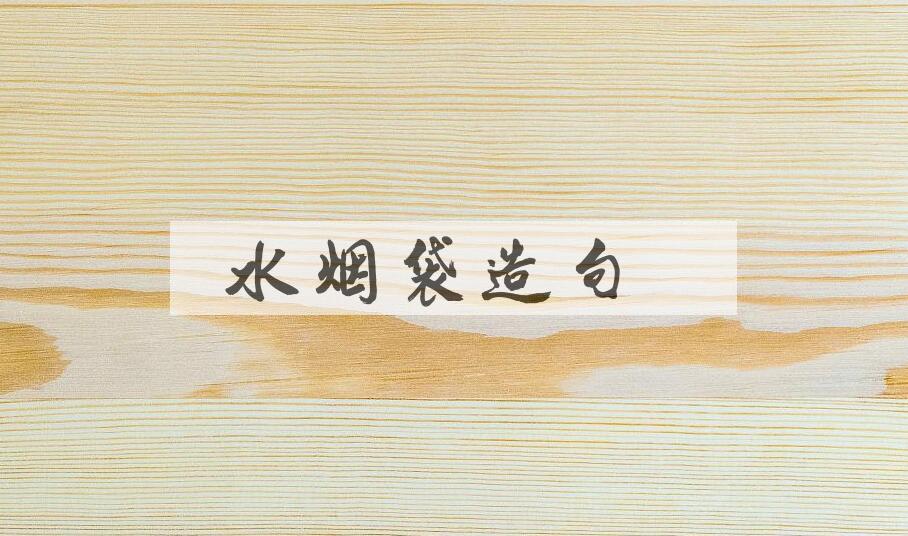 水烟袋造句